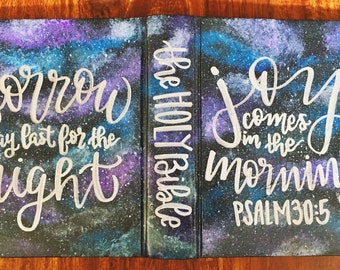 Sorrow
may last for the
night
the HOLY Bible
joy
comes
in the
morning
PSALM 30:5